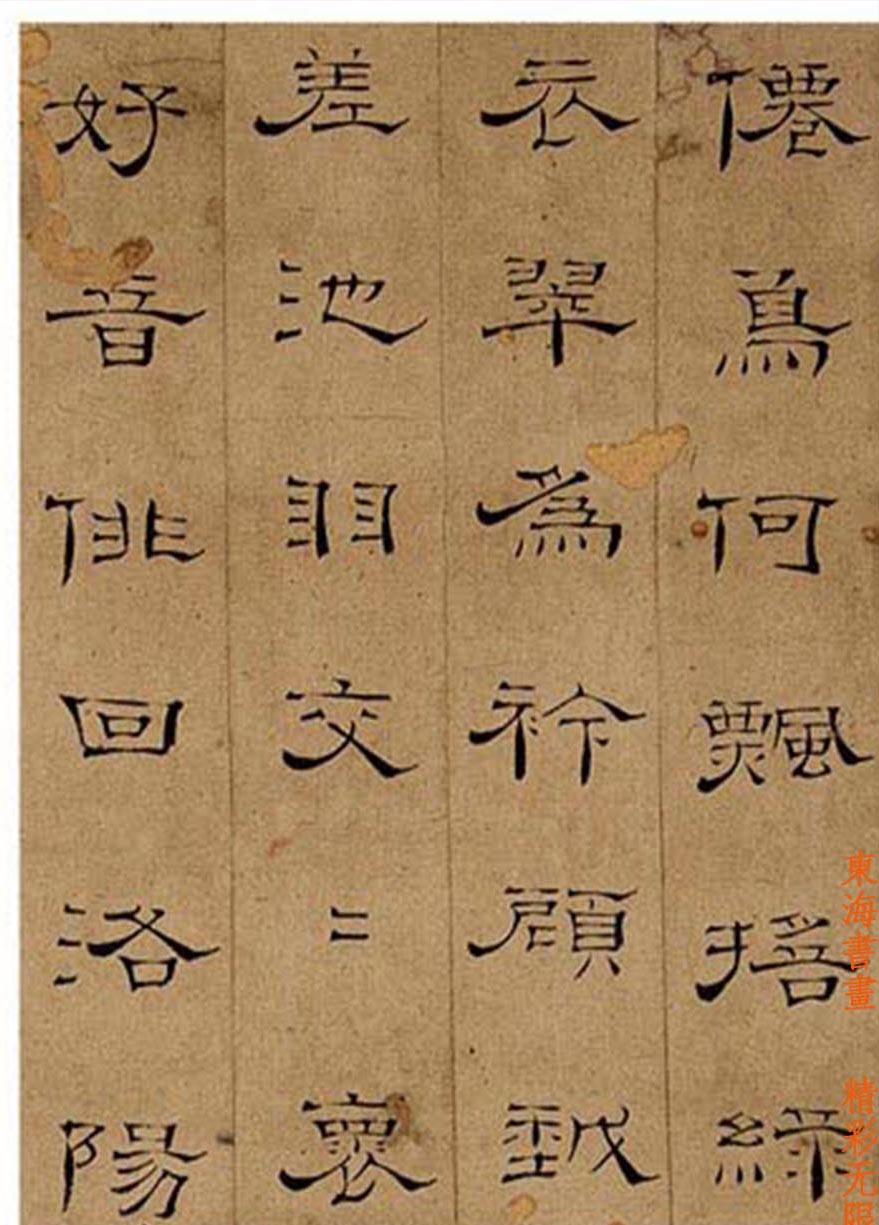 僊鳥何飄搖綠
衣翠為衿顧我
差池羽交=褱
好音俳回洛陽
東海書畫 精彩无限